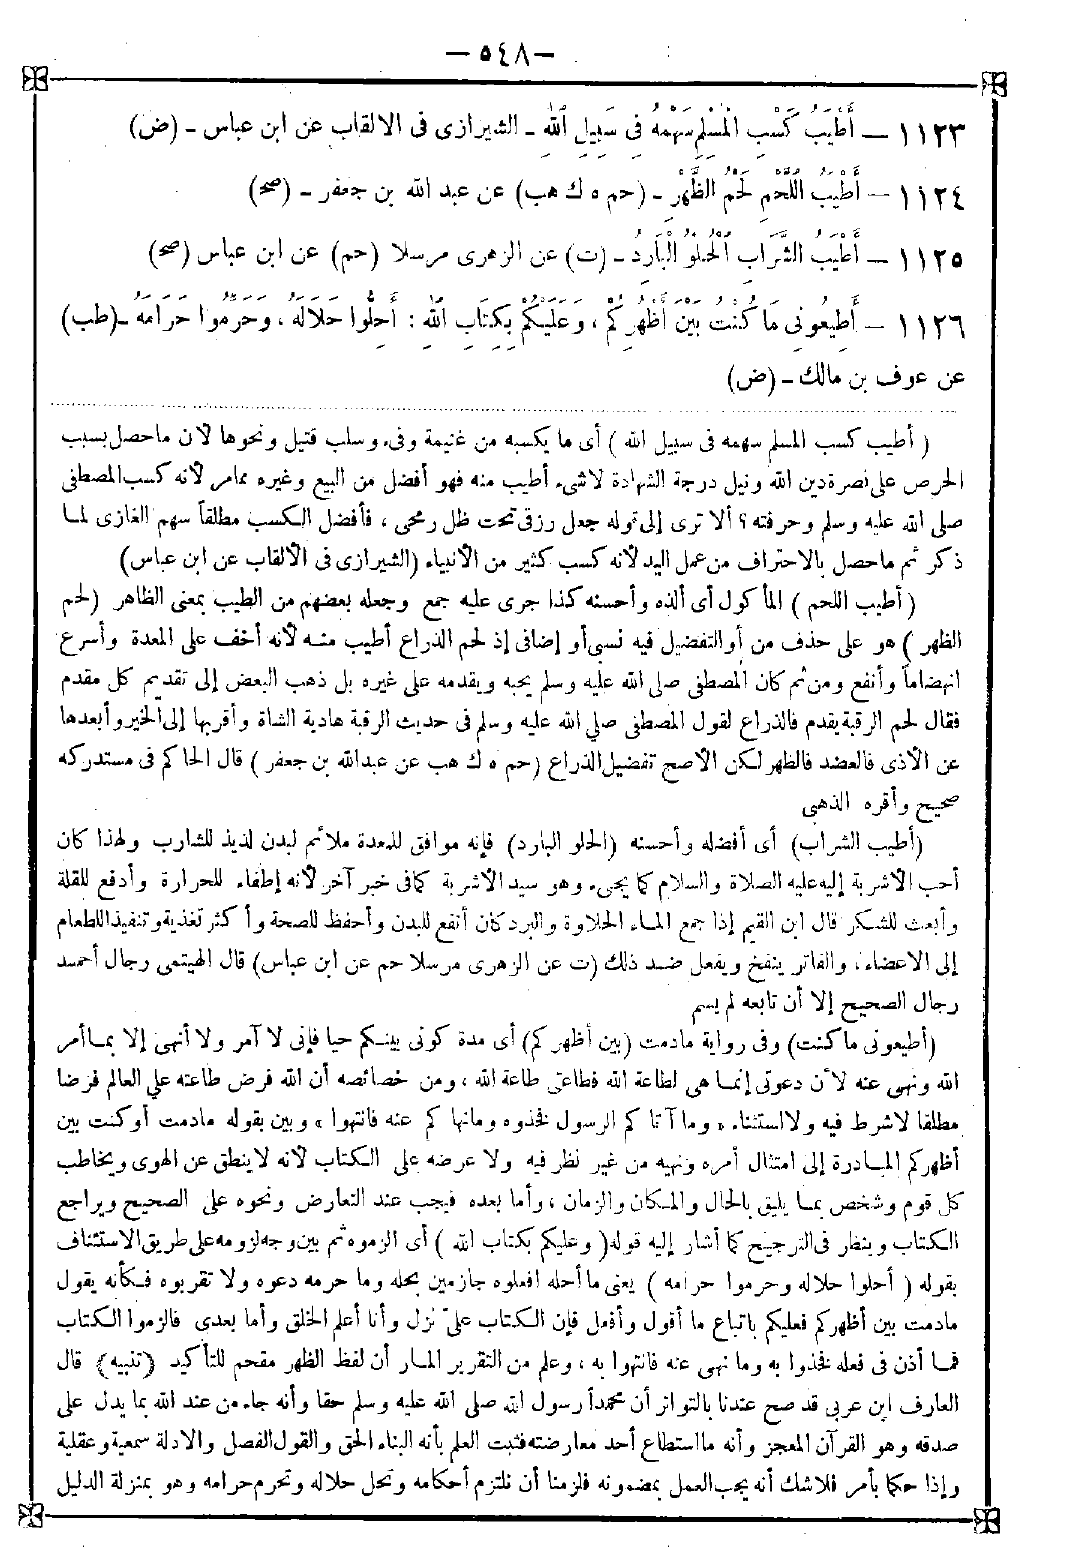 — ٥٤٨ —
١١٢٣ — أَطْيَبُ كَسْبِ الْمُسْلِمِ سَهْمُهُ فِي سَبِيلِ اللهِ - الشيرازى فى الالقاب عن ابن عباس - (ض)
١١٢٤ — أَطْيَبُ اللَّحْمِ لَحْمُ الظَّهْرِ - (حم ه ك هب) عن عبد الله بن جعفر - (صح)
١١٢٥ — أَطْيَبُ الشَّرَابِ الْحُلْوُ الْبَارِدُ - (ت) عن الزهرى مرسلا (حم) عن ابن عباس (صح)
١١٢٦ — أَطِيعُونِى مَا كُنْتُ بَيْنَ أَظْهُرِكُمْ ، وَعَلَيْكُمْ بِكِتَابِ اللهِ : أَحِلُّوا حَلَالَهُ ، وَحَرِّمُوا حَرَامَهُ - (طب)
عن عوف بن مالك - (ض)
( أطيب كسب المسلم سهمه فى سبيل الله ) أى ما يكسبه من غنيمة وفىء وسلب قتيل ونحوها لأن ما حصل بسبب
الحرص على نصرة دين الله ونيل درجة الشهادة لاشىء أطيب منه فهو أفضل من البيع وغيره مما مر لأنه كسب المصطفى
صلى الله عليه وسلم وحرفته ؟ ألا ترى إلى قوله جعل رزقى تحت ظل رمحى ، فأفضل الكسب مطلقاً سهم الغازى لما
ذكر ثم ما حصل بالاحتراف من عمل اليد لأنه كسب كثير من الأنبياء (الشيرازى فى الألقاب عن ابن عباس)
( أطيب اللحم ) المأكول أى ألذه وأحسنه كذا جرى عليه جمع وجعله بعضهم من الطيب بمعنى الظاهر (لحم
الظهر ) هو على حذف من أو التفضيل فيه نسبى أو إضافى إذ لحم الذراع أطيب منه لأنه أخف على المعدة وأسرع
انهضاماً وأنفع ومن ثم كان المصطفى صلى الله عليه وسلم يحبه ويقدمه على غيره بل ذهب البعض إلى تقديم كل مقدم
فقال لحم الرقبة يقدم فالذراع لقول المصطفى صلى الله عليه وسلم فى حديث الرقبة هادية الشاة وأقربها إلى الخير وأبعدها
عن الأذى فالعضد فالظهر لكن الأصح تفضيل الذراع (حم ه ك هب عن عبدالله بن جعفر ) قال الحاكم فى مستدركه
صحيح وأقره الذهبى
(أطيب الشراب) أى أفضله وأحسنه (الحلو البارد) فإنه موافق للمعدة ملائم لبدن لذيذ للشارب ولهذا كان
أحب الأشربة إليه عليه الصلاة والسلام كما يجىء وهو سيد الأشربة كما فى خبر آخر لأنه إطفاء للحرارة وأدفع للقلة
وأبعث للشكر قال ابن القيم إذا جمع الماء الحلاوة والبرد كان أنفع للبدن وأحفظ للصحة وأكثر تغذية وتنفيذا للطعام
إلى الاعضاء ، والفاتر ينفخ ويفعل ضد ذلك (ت عن الزهرى مرسلا حم عن ابن عباس) قال الهيتمى رجال أحمد
رجال الصحيح إلا أن تابعه لم يسم
(أطيعونى ما كنت) وفى رواية مادمت (بين أظهركم) أى مدة كونى بينكم حيا فإنى لا آمر ولا أنهى إلا بما أمر
الله ونهى عنه لأن دعوتى إنما هى لطاعة الله فطاعتى طاعة الله ، ومن خصائصه أن الله فرض طاعته على العالم فرضا
مطلقا لا شرط فيه ولا استثناء « وما آتاكم الرسول فخذوه وما نهاكم عنه فانتهوا » وبين بقوله مادمت أو كنت بين
أظهركم المبادرة إلى امتثال أمره ونهيه من غير نظر فيه ولا عرضه على الكتاب لأنه لا ينطق عن الهوى ويخاطب
كل قوم وشخص بما يليق بالحال والمكان والزمان ، وأما بعده فيجب عند التعارض ونحوه على الصحيح ويراجع
الكتاب وينظر فى الترجيح كما أشار إليه قوله( وعليكم بكتاب الله ) أى الزموه ثم بين وجه لزومه على طريق الاستئناف
بقوله ( أحلوا حلاله وحرموا حرامه ) يعنى ما أحله افعلوه جازمين بحله وما حرمه دعوه ولا تقربوه فكأنه يقول
مادمت بين أظهركم فعليكم باتباع ما أقول وأفعل فإن الكتاب علىّ نزل وأنا أعلم الخلق وأما بعدى فالزموا الكتاب
فما أذن فى فعله فخذوا به وما نهى عنه فانتهوا به ، وعلم من التقرير المار أن لفظ الظهر مقحم للتأكيد (تنبيه) قال
العارف ابن عربى قد صح عندنا بالتواتر أن محمداً رسول الله صلى الله عليه وسلم حقا وأنه جاء من عند الله بما يدل على
صدقه وهو القرآن المعجز وأنه ما استطاع أحد معارضته فثبت العلم بأنه النباء الحق والقول الفصل والادلة سمعية وعقلية
وإذا حكما بأمر فلاشك أنه يجب العمل بمضمونه فلزمنا أن نلتزم أحكامه ونحل حلاله ونحرم حرامه وهو بمنزلة الدليل